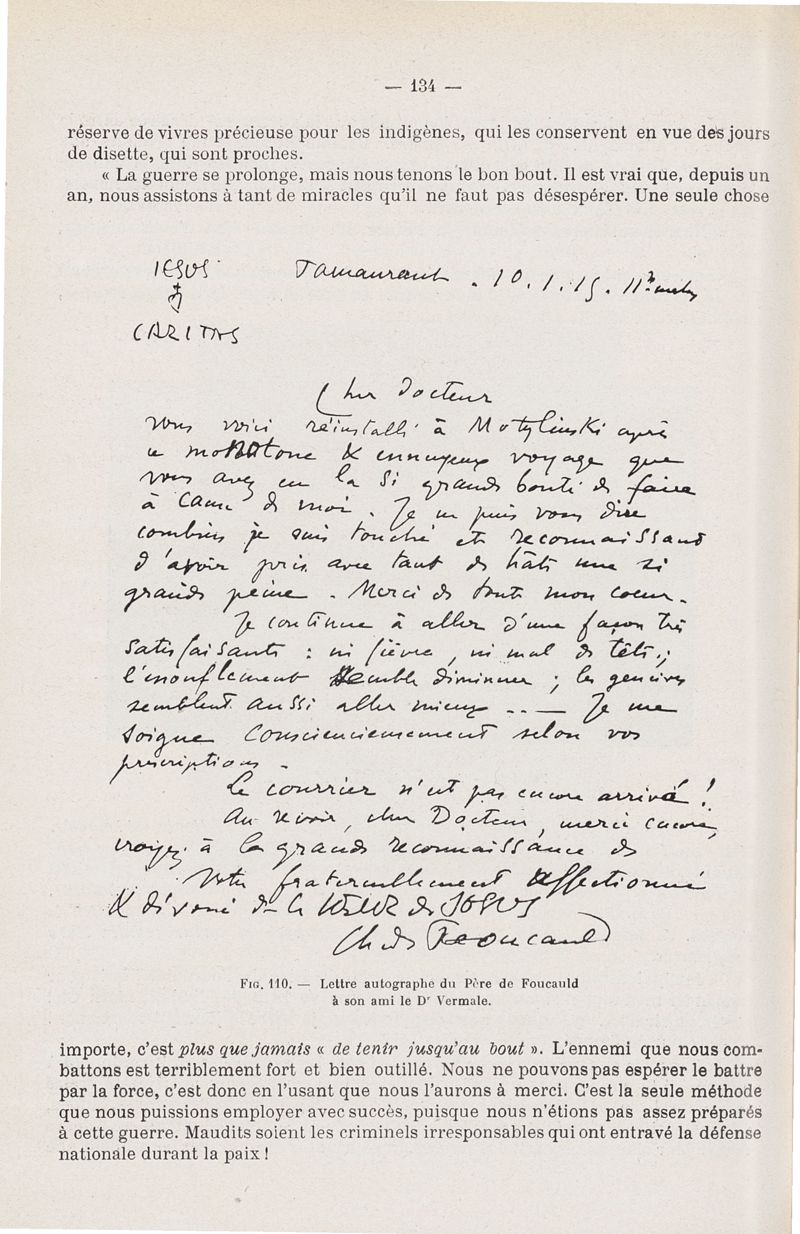 — 134 —
réserve de vivres précieuse pour les indigènes, qui les conservent en vue des jours
de disette, qui sont proches.
« La guerre se prolonge, mais nous tenons le bon bout. Il est vrai que, depuis un
an, nous assistons à tant de miracles qu'il ne faut pas désespérer. Une seule chose
IESUS
CARITAS
Tamanrasset. 10.1.15.
Cher Docteur
Vous voici réinstallé à Motylinski après
ce monotone & ennuyeux voyage que
vous avez eu la si grande bonté de faire
à cause de moi. Je ne puis vous dire
combien je suis touché et reconnaissant
d'avoir pris avec tant de hâte une si
grande peine. Merci de tout mon coeur.
Je continue à aller d'une façon très
satisfaisante : ni fièvre, ni mal de tête ;
l'essouflement semble diminuer ; les gencives
semblent aussi aller mieux .. — Je me
soigne consciencieusement selon vos
prescriptions.
Le courrier n'est pas encore arrivé !
Au revoir, cher Docteur, merci encore,
croyez à la grande reconnaissance de
Votre fraternellement affectionné
& dévoué dans le COEUR de JESUS
Ch de Foucauld
Fig. 110. — Lettre autographe du Père de Foucauld
à son ami le Dr Vermale.
importe, c'est plus que jamais « de tenir jusqu'au bout ». L'ennemi que nous com-
battons est terriblement fort et bien outillé. Nous ne pouvons pas espérer le battre
par la force, c'est donc en l'usant que nous l'aurons à merci. C'est la seule méthode
que nous puissions employer avec succès, puisque nous n'étions pas assez préparés
à cette guerre. Maudits soient les criminels irresponsables qui ont entravé la défense
nationale durant la paix !